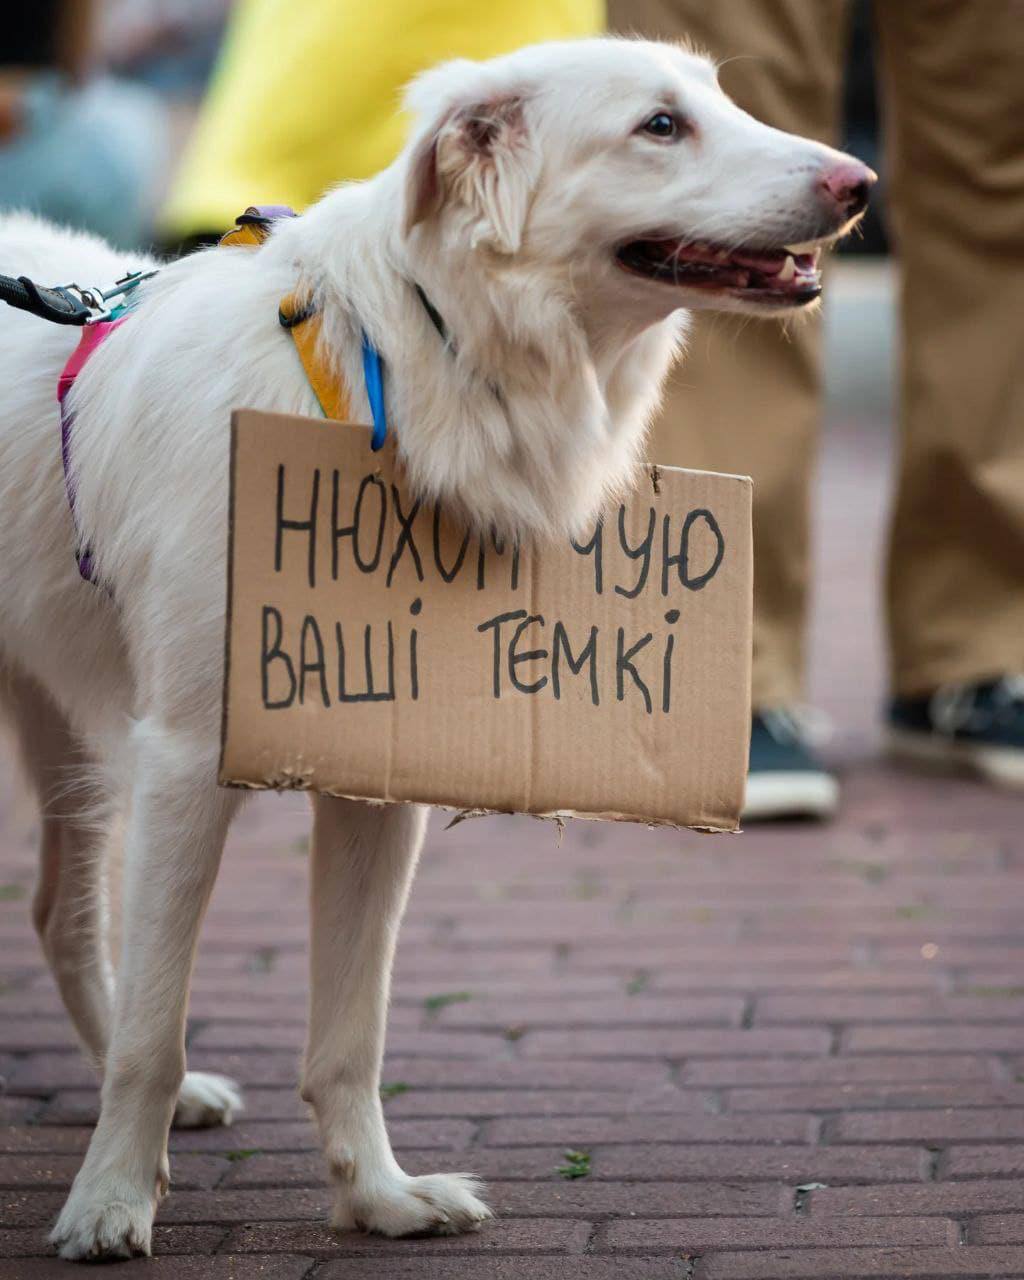 НЮХОМ ЧУЮ
ВАШІ ТЄМКІ